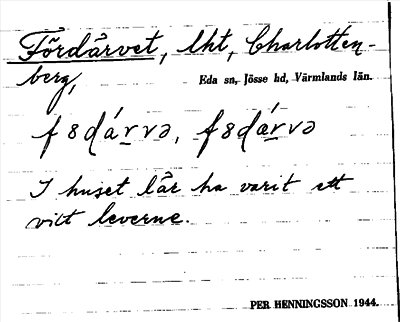 Fördärvet, lht, Charlotten-
berg,
Eda sn, Jösse hd, Värmlands län.
f8dá̱rvə, f8dá̱rvə
I huset lär ha varit ett
vilt leverne.
PER HENNINGSSON 1944.